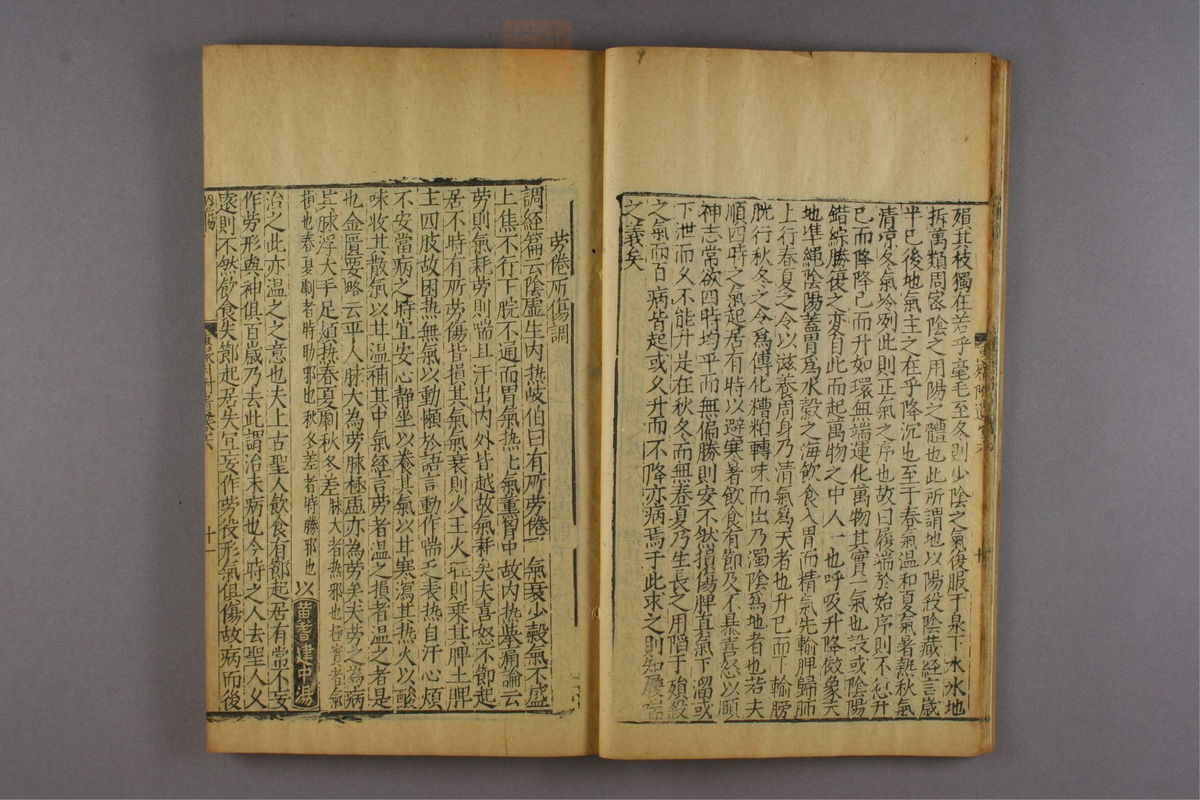 殞其枝獨在若乎毫毛至冬則少陰之氣復服于泉下水冰地
拆萬類周密陰之用陽之體也此所謂地以陽殺陰藏經言歲
半已後地氣主之在乎降沉也至于春氣温和夏氣暑熱秋氣
清凉冬氣冷冽此則正氣之序也故曰履端於始序則不愆升
已而降降已而升如環無端運化萬物其實一氣也設或陰陽
錯綜勝復之変自此而起萬物之中人一也呼吸升降倣象天
地凖繩陰陽蓋胃爲水榖之海飲食入胃而精氣先輸脾歸肺
上行春夏之令以滋養周身乃清氣爲天者也升已而下輸膀
胱行秋冬之令爲傳化糟粕轉味而出乃濁陰爲地者也若夫
順四時之氣起居有時以避寒暑飲食有節及不暴喜怒以頤
神志常欲四時均平而無偏勝則安不然損傷脾真氣下溜或
下泄而久不能升是在秋冬而無春夏乃生長之用陷于殞殺
之氣而百病皆起或久升而不降亦病焉于此求之則知履端
之義矣
十
勞倦所傷調
調經篇云陰虛生内热岐伯曰有所勞倦 氣衰少榖氣不盛
上焦不行下脘不通而胃氣热热氣熏胷中故内热舉痛論云
勞則氣耗勞則喘且汗出内外皆越故氣耗矣夫喜怒不節起
居不時有所勞傷皆損其氣氣衰則火王火王則乗其脾土脾
主四皮故困热無氣以動懶於語言動作喘乏表热自汗心煩
不安當病之時宜安心靜坐以養其氣以甘寒瀉其热火以酸
味收其散氣以甘温補其中氣經言勞者温之損者温之者是
也金匱要略云平人脉大為勞脉極虚亦為勞矣夫勞之為病
其脉浮大手足煩热春夏劇秋冬差脉大者热邪也極虚者氣
損也春夏劇者時助邪也秋冬差者時勝邪也 以黄蓍建中湯
治之此亦温之之意也夫上古聖人飲食有節起居有常不妄
作勞形與神俱百歲乃去此謂治未病也今時之人去聖人久
遠則不然飲食失節起居失宜妄作勞役形氣俱傷故病而後
十一